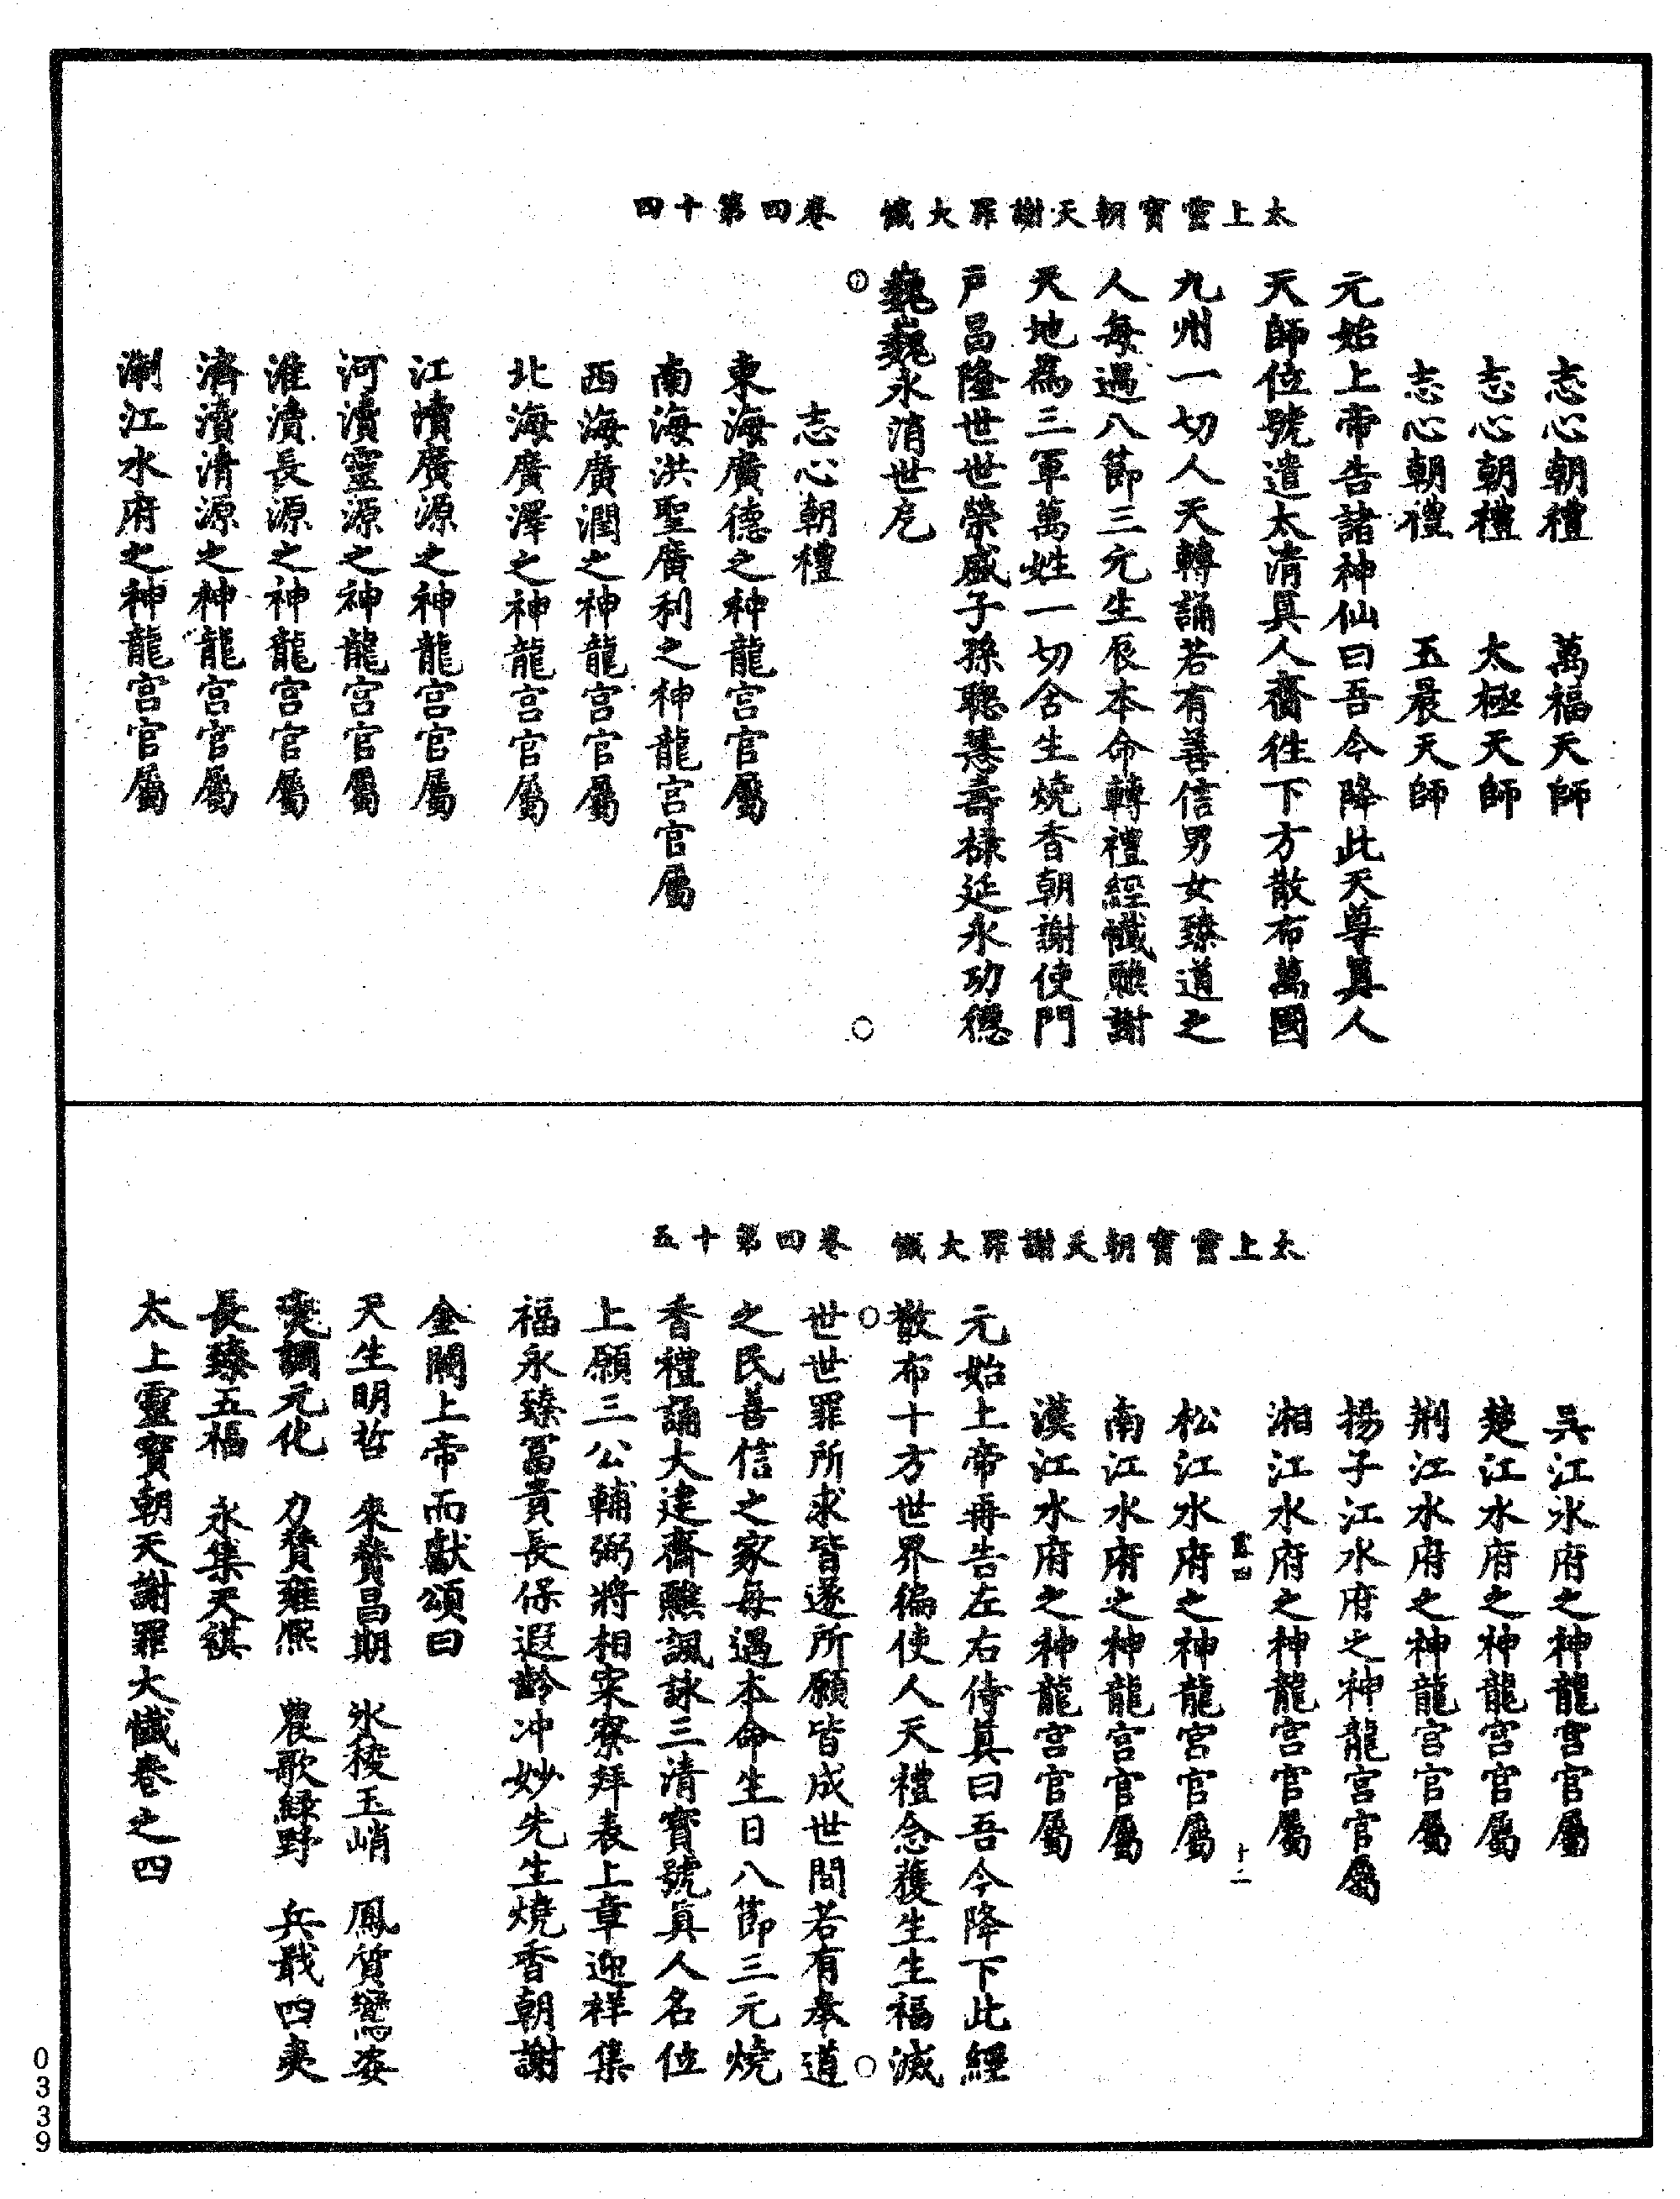 太上靈寶朝天謝罪大懺　卷四第十四
志心朝禮　萬福天師
志心朝禮　太極天師
志心朝禮　五晨天師
元始上帝告諸神仙曰吾今降此天尊真人
天師位號遣太清真人齎徃下方散布萬國
九州一切人天轉誦若有善信男女臻道之
人每遇八節三元生辰本命轉禮經懺醮謝
天地為三軍萬姓一切含生燒香朝謝使門
戶昌隆世世榮盛子孫聰慧壽祿延永功德
巍巍永消世厄
志心朝禮
東海廣德之神龍宮官屬
南海洪聖廣利之神龍宮官屬
西海廣潤之神龍宮官屬
北海廣澤之神龍宮官屬
江瀆廣源之神龍宮官屬
河瀆靈源之神龍宮官屬
淮瀆長源之神龍宮官屬
濟瀆清源之神龍宮官屬
淛江水府之神龍宮官屬
太上靈寶朝天謝罪大懺　卷四第十五
吳江水府之神龍宮官屬
楚江水府之神龍宮官屬
荊江水府之神龍宮官屬
揚子江水府之神龍宮官屬
湘江水府之神龍宮官屬
十二
松江水府之神龍宮官屬
南江水府之神龍宮官屬
漢江水府之神龍宮官屬
元始上帝再告左右侍真曰吾今降下此經
散布十方世界徧使人天禮念獲生生福滅
世世罪所求皆遂所願皆成世間若有奉道
之民善信之家每遇本命生日八節三元燒
香禮誦大建齋醮諷詠三清寶號真人名位
上願三公輔弼將相寀寮拜表上章迎祥集
福永臻富貴長保遐齡冲妙先生燒香朝謝
金闕上帝而獻頌曰
天生明哲　來贊昌期　氷稜玉峭　鳳質鸞姿
燮調元化　力贊雍熈　農歌緑野　兵戢四夷
長臻五福　永集天祺
太上靈寶朝天謝罪大懺卷之四
0339